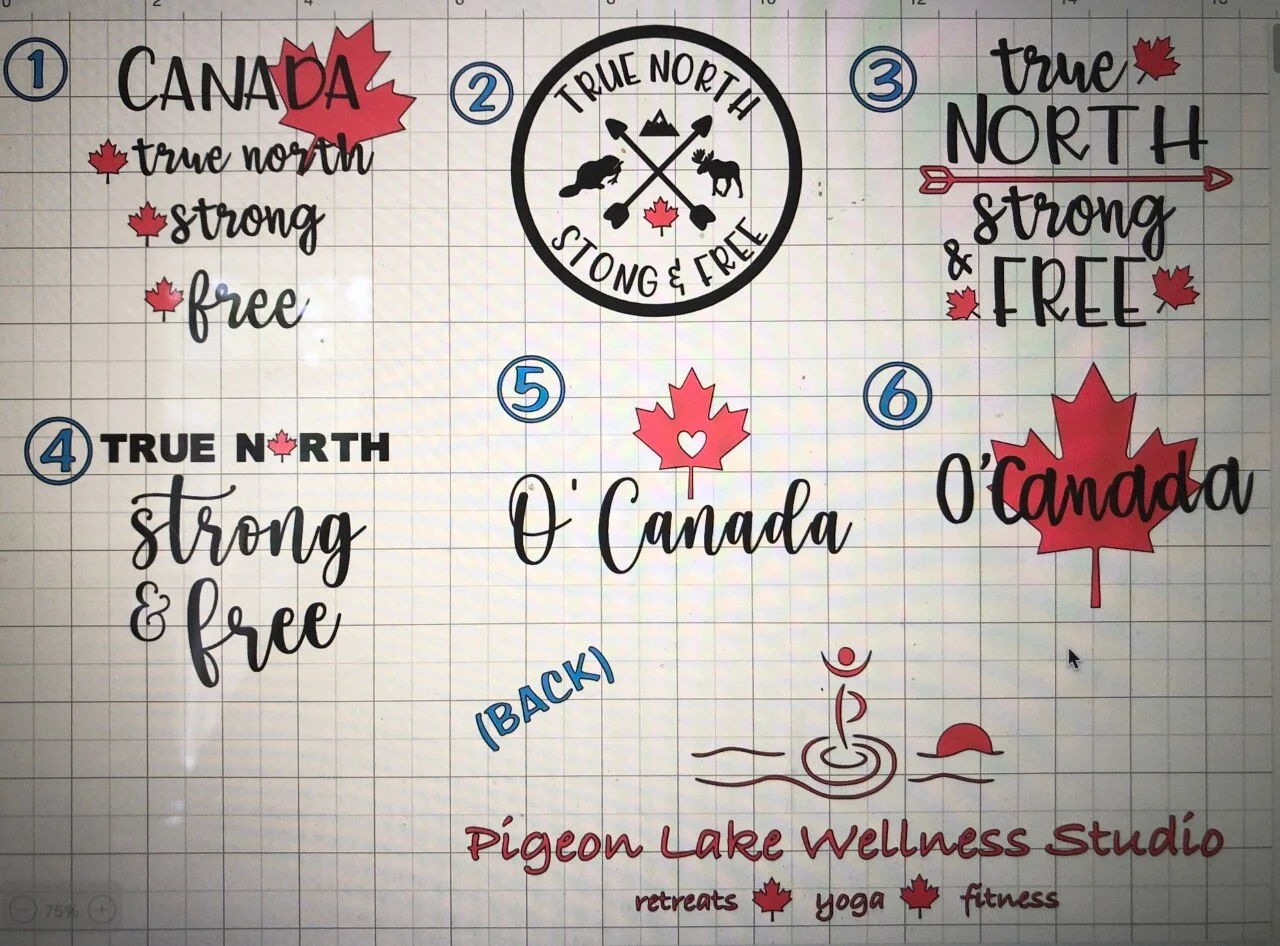 1
CANADA
true north
strong
free
2
TRUE NORTH
STONG & FREE
3
true
NORTH
strong
&
FREE
4
TRUE NORTH
strong
& free
5
O' Canada
6
O'Canada
(BACK)
Pigeon Lake Wellness Studio
retreats yoga fitness
75%